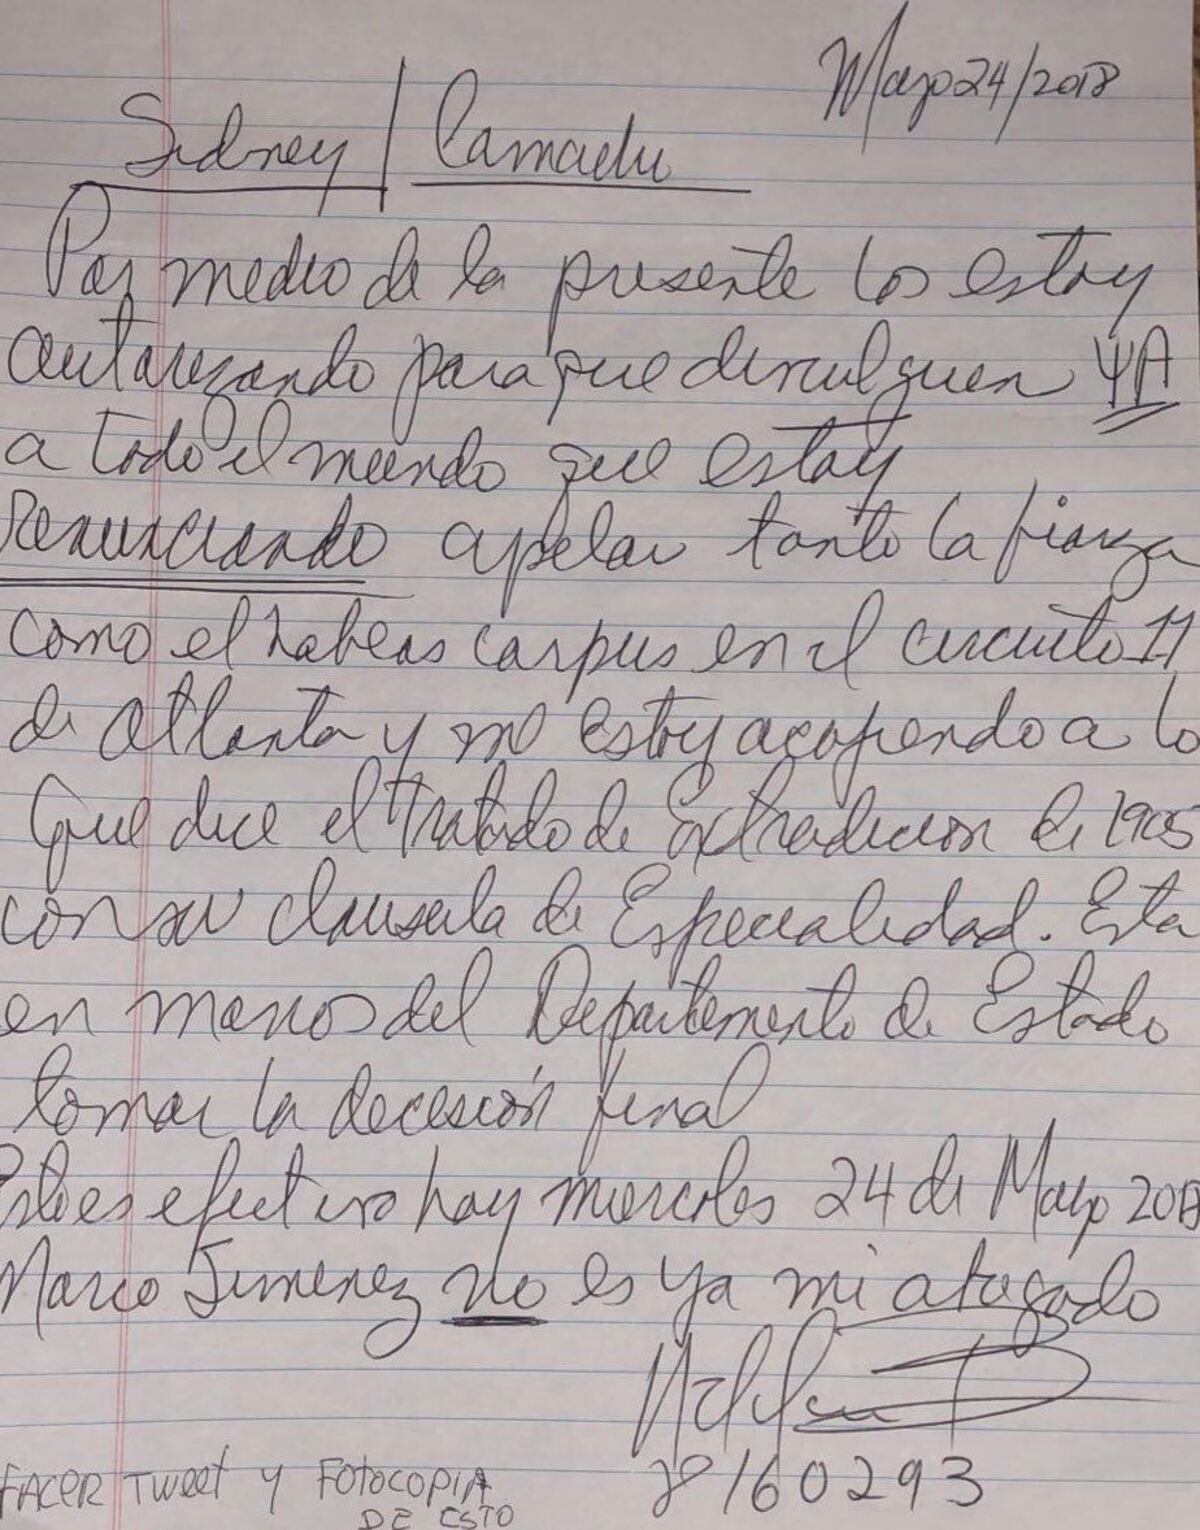 Mayo 24/2018
Sidney / Camaelu
Por medio de la presente los estoy
autorizando para que divulguen YA
a todo el mundo que estoy
renunciando apelar tanto la fianza
como el habeas corpus en el circuito 11
de Atlanta y me estoy acogiendo a lo
que dice el tratado de Extradicion de 1905
con su clausula de Especialidad. Esta
en manos del Departamento de Estado
tomar la decisión final
Esto es efectivo hoy miercoles 24 de Mayo 2018
Marco Jimenez no es ya mi abogado
78160293
FACER TWEET Y FOTOCOPIA
DE ESTO